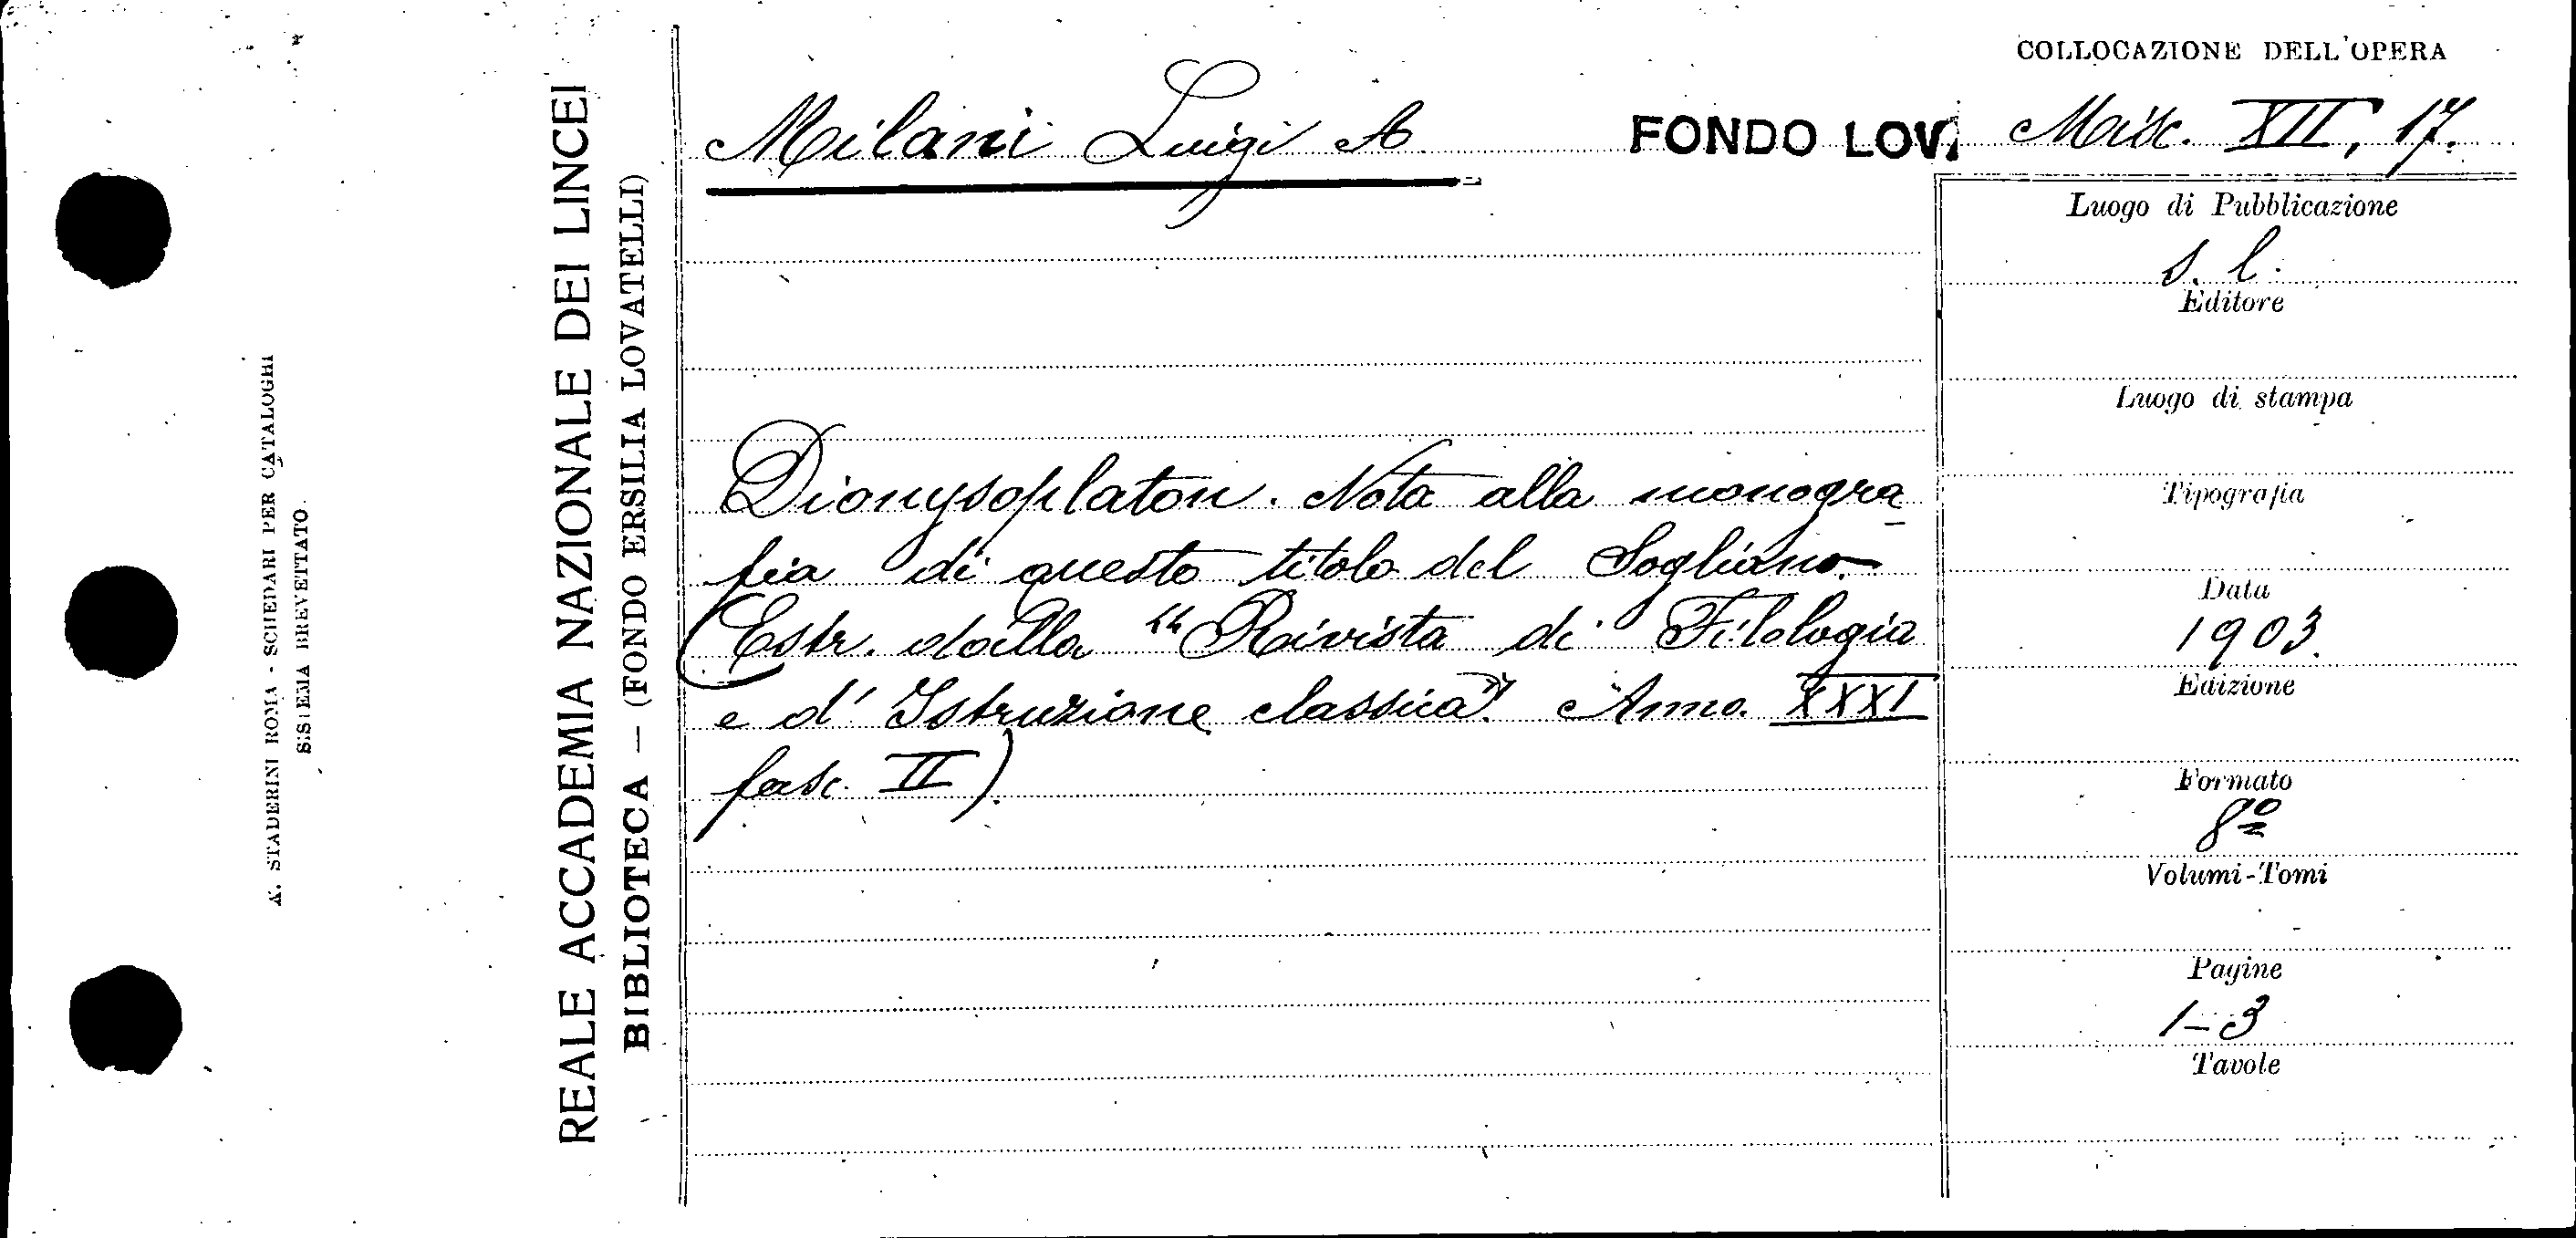 A. STADERINI ROMA - SCHEDARI PER CATALOGHI
SISTEMA BREVETTATO.
REALE ACCADEMIA NAZIONALE DEI LINCEI
BIBLIOTECA — (FONDO ERSILIA LOVATELLI)
COLLOCAZIONE DELL'OPERA
Milani Luigi A. FONDO LOV. Misc. XII, 17.
Dionysoplaton. Nota alla monogra
fia di questo titolo del Sogliano.
(Estr. dalla "Rivista di Filologia
e d'Istruzione classica". Anno. XXXI
fasc. II).
Luogo di Pubblicazione
s. l.
Editore
Luogo di stampa
Tipografia
Data
1903.
Edizione
Formato
8º
Volumi-Tomi
Pagine
1-3
Tavole